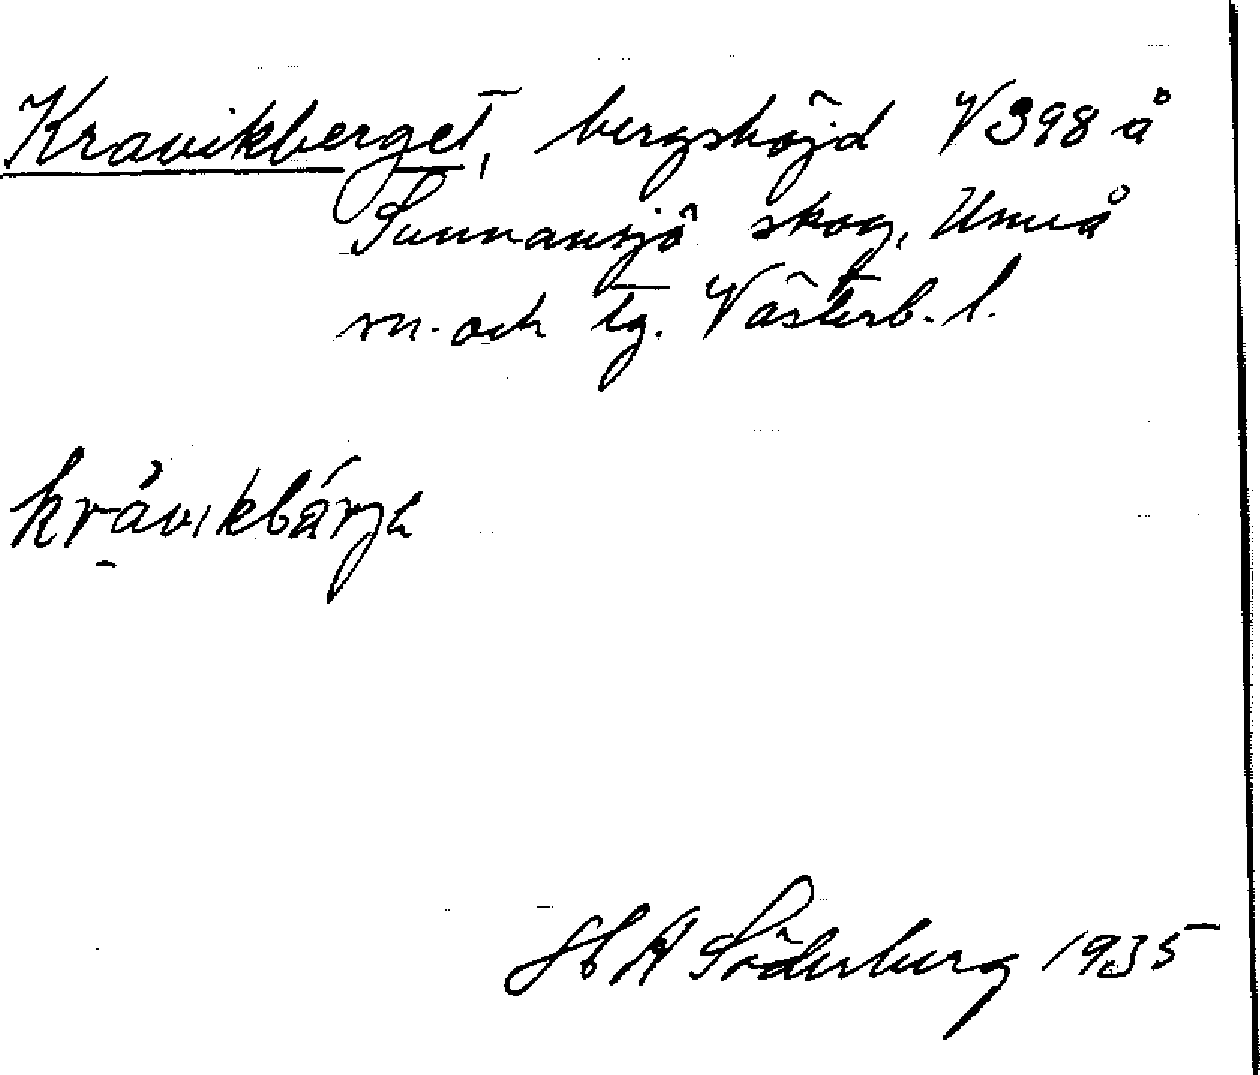 Kravikberget, bergshöjd V 398 å
Sunnansjö skog, Umeå
sn. och tg. Västerb. l.
kràvikbárjə
H A Söderberg 1935